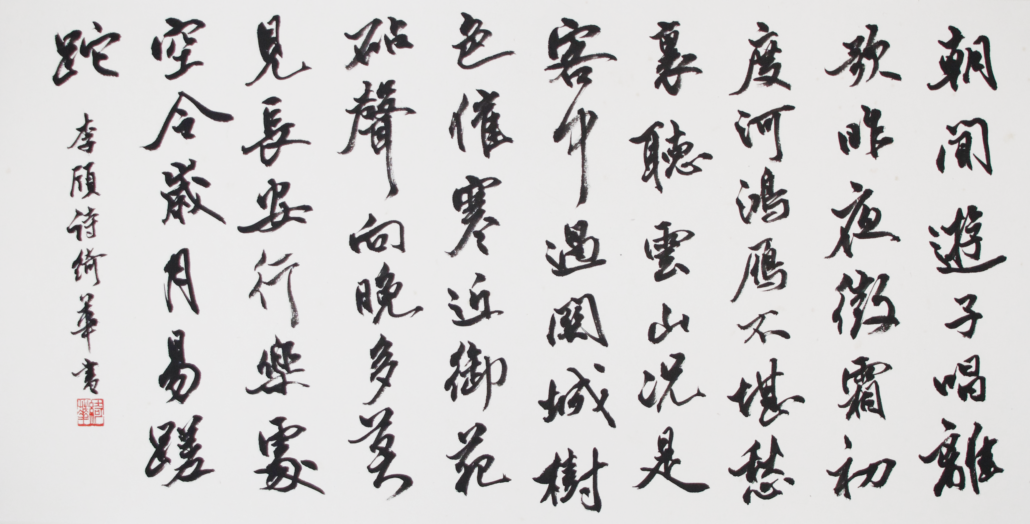 朝聞遊子唱離
歌昨夜微霜初
度河鴻雁不堪愁
裏聽雲山況是
客中過關城樹
色催寒近御苑
砧聲向晚多莫
見長安行樂處
空令歲月易蹉
跎
李頎詩綺華書